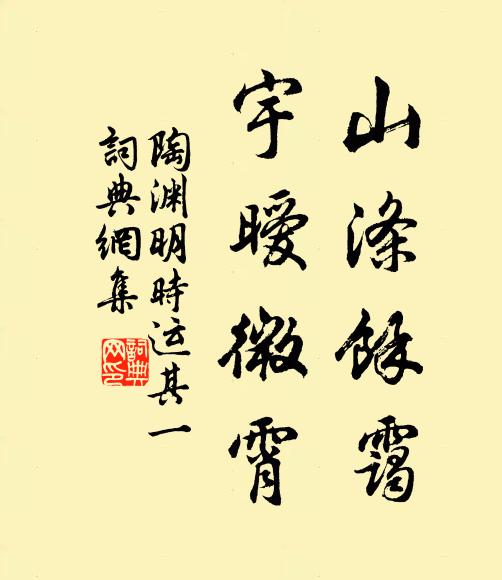 山滌餘靄
宇曖微霄
陶渊明時运其一
詞典網集
詞典网印